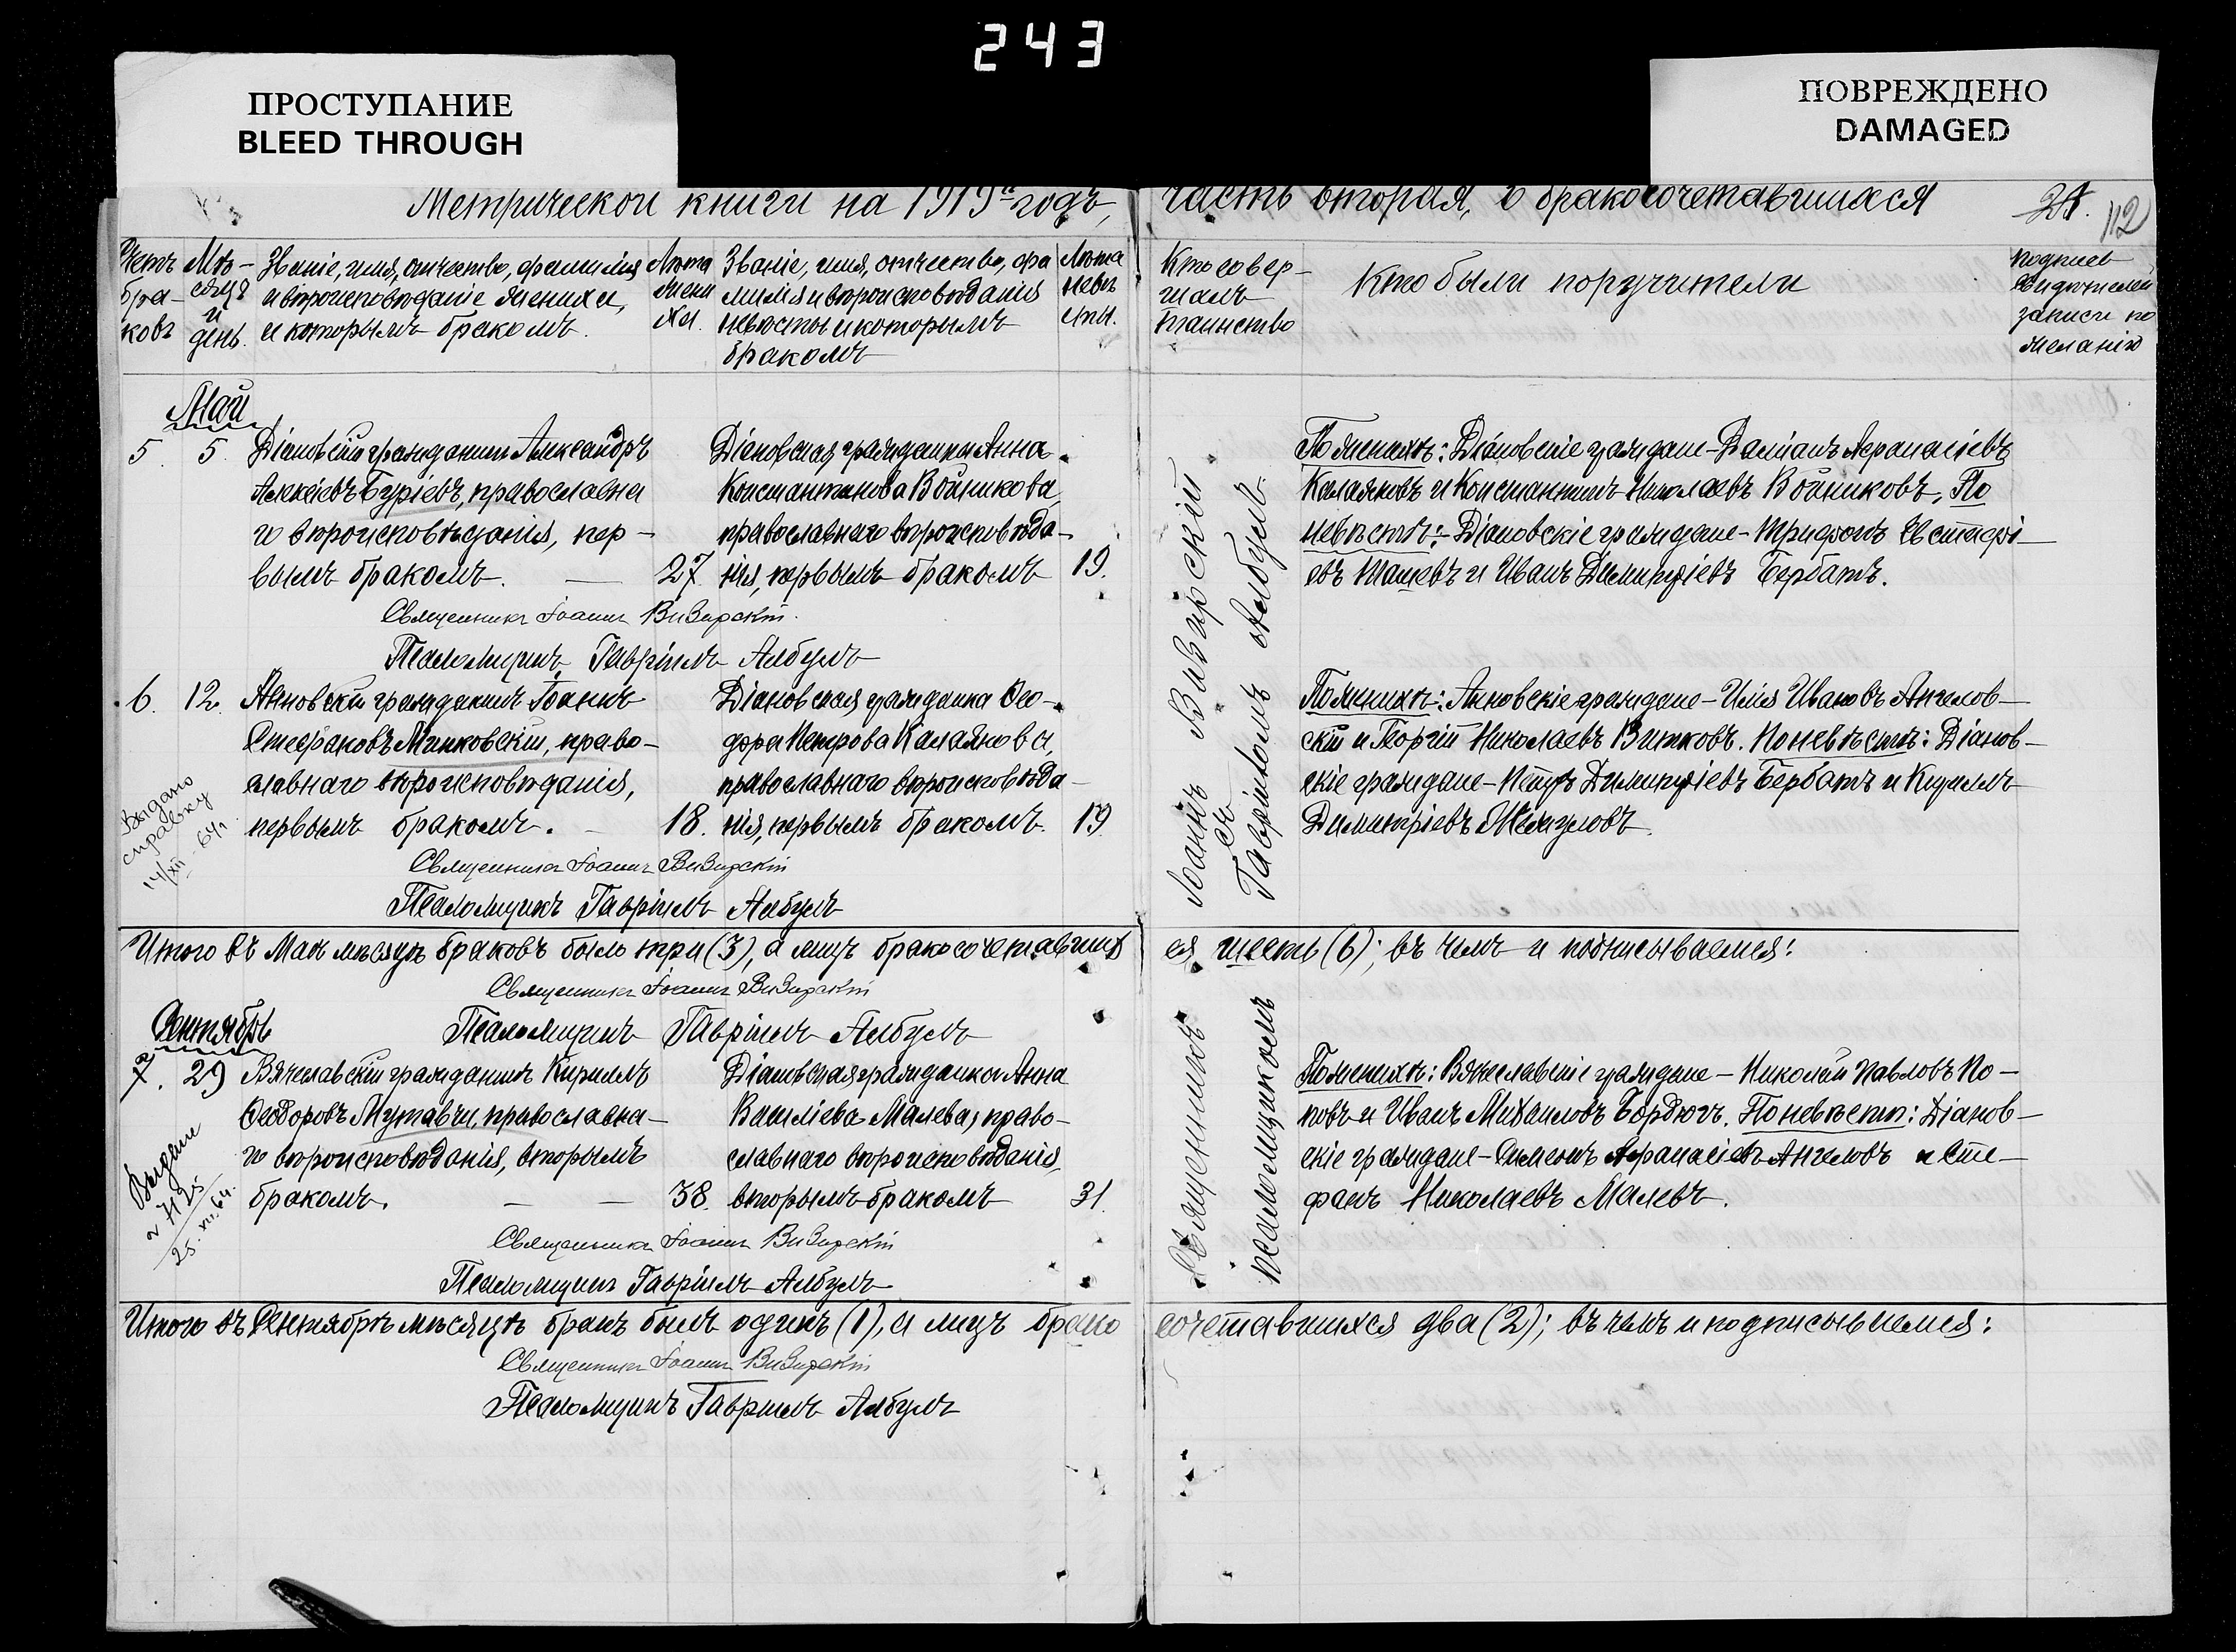 243
ПРОСТУПАНИЕ
BLEED THROUGH
ПОВРЕЖДЕНО
DAMAGED
Метрической книги на 1919й годъ,
часть вторая, о бракосочетавшихся
112
Счетъ браковъ
Мѣсяцъ и день.
Званіе, имя, отчество, фамилія
и вѣроисповѣданіе жениха,
и которымъ бракомъ.
Лѣта жениха.
Званіе, имя, отчество, фа
милія и вѣроисповѣданія
невѣсты и которымъ
бракомъ
Лѣта невѣсты.
Кто совер-
шалъ
таинство
Кто были поручители
Подписъ
свидѣтелей
записи по
желанію
Май
5. 5. Діановскій гражданинъ Александръ
Алексіевъ Буріевъ, православна
го вѣроисповѣданія, пер-
вымъ бракомъ. — 27.
Діановская гражданка Анна
Константинова Войникова,
православнаго вѣроисповѣда-
нія, первымъ бракомъ 19.
По женихѣ: Діановскіе граждане - Даміанъ Аѳанасіевъ
Калаяновъ и Константинъ Николаевъ Войниковъ, По
невѣстѣ: - Діановскіе граждане - Трифонъ Евстафі-
евъ Ташевъ и Иванъ Димитріевъ Бербатъ.
Священникъ Іоаннъ Визирскій
Псаломщикъ Гавріилъ Албулъ
6. 12. Анновскій гражданинъ Іоаннъ
Стефановъ Минковскій, право-
славнаго вѣроисповѣданія,
первымъ бракомъ. — 18.
Діановская гражданка Ѳео-
дора Петрова Калаянова,
православнаго вѣроисповѣда-
нія, первымъ бракомъ. 19
По женихѣ: Анновскіе граждане - Илія Ивановъ Ангелов-
скій и Георгій Николаевъ Витковъ. По невѣстѣ: Діанов-
скіе граждане - Петръ Димитріевъ Бербатъ и Кириллъ
Димитріевъ
Выдано
справку
14/XII-64г.
Священникъ Іоаннъ Визирскій
Псаломщикъ Гавріилъ Албулъ
Итого въ Маѣ мѣсяцѣ браковъ было три (3), а лицъ бракосочетавших
ся шесть (6); въ чемъ и подписываемся:
Священникъ Іоаннъ Визирскій
Псаломщикъ Гавріилъ Албулъ
Священникъ Іоаннъ Визирскій
съ
псаломщикомъ Гавріиломъ Албулъ.
Сентябрь
7. 29 Вячеславскій гражданинъ Кириллъ
Ѳеодоровъ Мутавчи, православна-
го вѣроисповѣданія, вторымъ
бракомъ. — — 38.
Діановская гражданка Анна
Василіева Малева, право-
славнаго вѣроисповѣданія,
вторымъ бракомъ 31.
По женихѣ: Вячеславскіе граждане - Николай Павловъ По-
повъ и Иванъ Михаиловъ Бордючъ. По невѣстѣ: Діанов-
скіе граждане - Симеонъ Аѳанасіевъ Ангеловъ и Сте-
фанъ Николаевъ Малевъ.
Выдано
25.XII.64.
Священникъ Іоаннъ Визирскій
Псаломщикъ Гавріилъ Албулъ
Итого въ Сентябрѣ мѣсяцѣ бракъ былъ одинъ (1), а лицъ брако
сочетавшихся два (2); въ чемъ и подписываемся:
Священникъ Іоаннъ Визирскій
Псаломщикъ Гавріилъ Албулъ